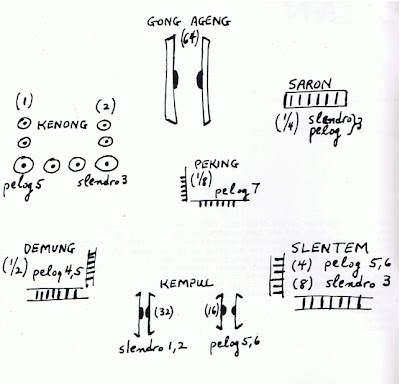 GONG AGENG
(64)
(1)
(2)
KENONG
pelog 5
slendro 3
SARON
(1/4) slendro } 3
pelog
PEKING
(1/8)
pelog 7
DEMUNG
(1/2) pelog 4,5
KEMPUL
(32)
(16)
slendro 1,2
pelog 5,6
SLENTEM
(4) pelog 5,6
(8) slendro 3